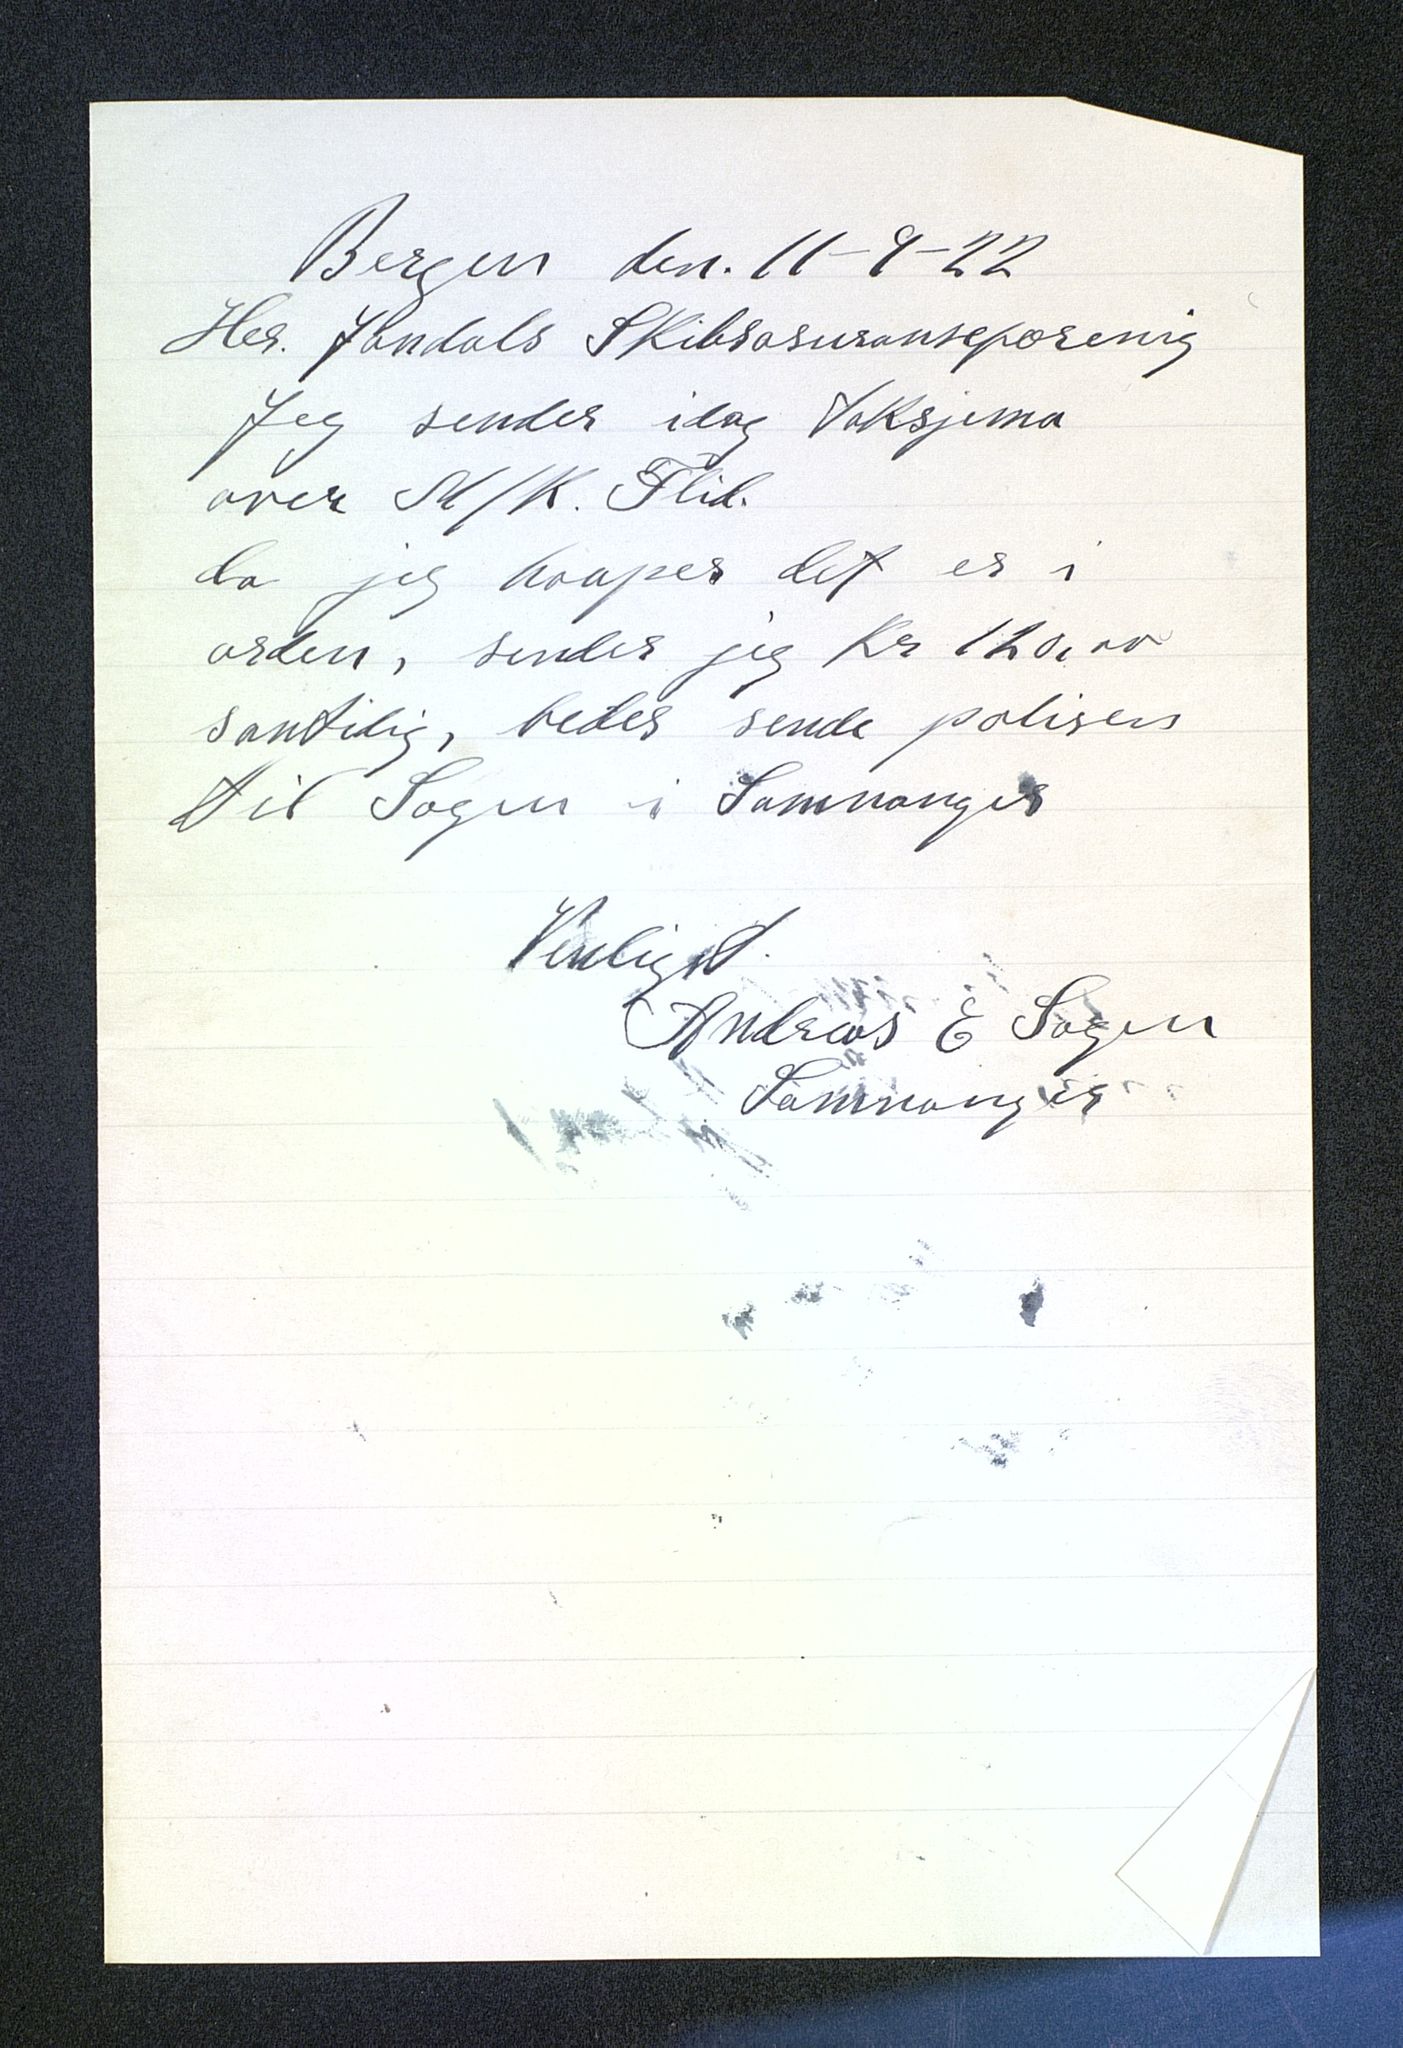 Bergen den. 11-9-22
Her. Jondals Skibsasuranseforenig
Jeg sender idag taksjema
over M/K. Flid.
da jeg haaper det er i
orden, sender jeg Kr 120,00
samtidig, bedes sende polisen
til Sagen i Samnanger
Venligst.
Andreas E Sagen
Samnanger